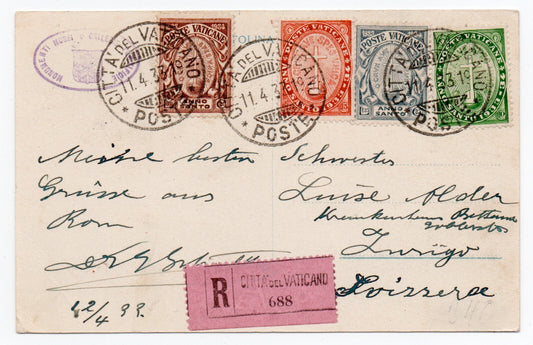 MONUMENTI MUSEI E GALLERIE
CITTA' DEL VATICANO
11.4.33.19
* POSTE *
CITTA' DEL VATICANO
11.4.33.19
* POSTE *
CITTA' DEL VATICANO
11.4.33.19
* POSTE *
POSTE VATICANE
ANNO
SANTO
POSTE VATICANE
POSTE VATICANE
ANNO
SANTO
Meine besten
Grüsse aus
Rom
12/4 33.
Schwester
Luise Alder
Krankenhaus Bethanien
Zurigo
Svizzera
R
CITTA' DEL VATICANO
688